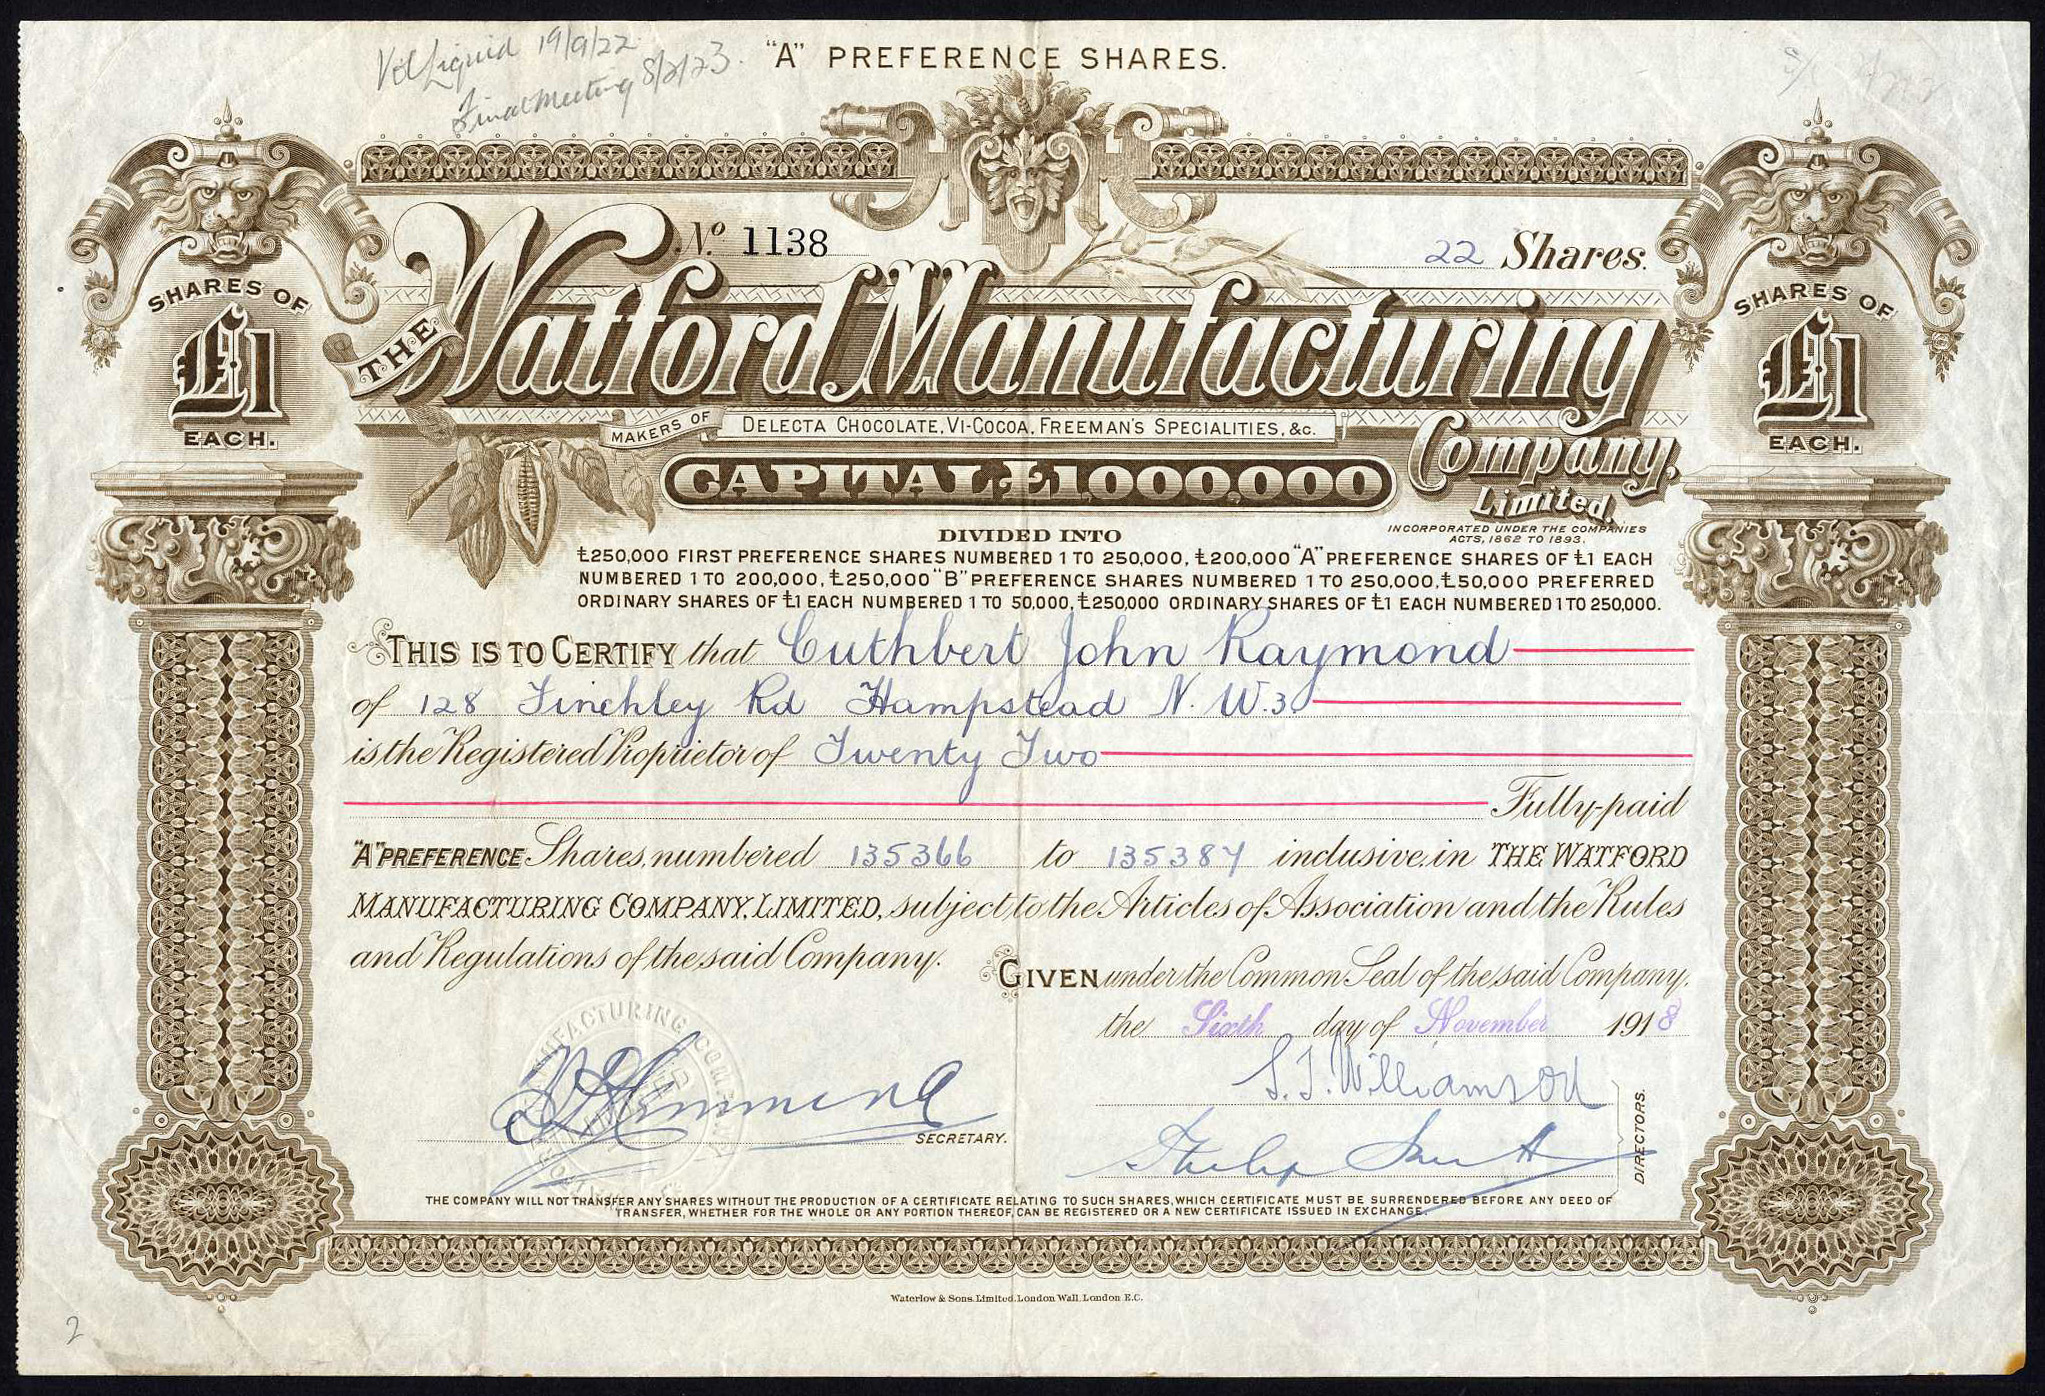 Vol Liquid 19/9/22
Final Meeting 8/2/23.
"A" PREFERENCE SHARES.
No. 1138
22 Shares.
SHARES OF
£1
EACH.
SHARES OF
£1
EACH.
THE Watford Manufacturing
Company,
Limited,
MAKERS OF DELECTA CHOCOLATE, VI-COCOA, FREEMAN'S SPECIALITIES, &c.
CAPITAL £1,000,000
INCORPORATED UNDER THE COMPANIES
ACTS, 1862 TO 1893.
DIVIDED INTO
£250,000 FIRST PREFERENCE SHARES NUMBERED 1 TO 250,000, £200,000 "A" PREFERENCE SHARES OF £1 EACH
NUMBERED 1 TO 200,000, £250,000 "B" PREFERENCE SHARES NUMBERED 1 TO 250,000. £50,000 PREFERRED
ORDINARY SHARES OF £1 EACH NUMBERED 1 TO 50,000, £250,000 ORDINARY SHARES OF £1 EACH NUMBERED 1 TO 250,000.
THIS IS TO CERTIFY that Cuthbert John Raymond
of 128 Finchley Rd Hampstead N.W.3.
is the Registered Proprietor of Twenty Two
Fully-paid
"A" PREFERENCE Shares, numbered 135366 to 135387 inclusive, in THE WATFORD
MANUFACTURING COMPANY, LIMITED, subject to the Articles of Association and the Rules
and Regulations of the said Company.
GIVEN under the Common Seal of the said Company,
the Sixth day of November 1918
S. J. Williamson
SECRETARY.
DIRECTORS.
THE COMPANY WILL NOT TRANSFER ANY SHARES WITHOUT THE PRODUCTION OF A CERTIFICATE RELATING TO SUCH SHARES, WHICH CERTIFICATE MUST BE SURRENDERED BEFORE ANY DEED OF
TRANSFER, WHETHER FOR THE WHOLE OR ANY PORTION THEREOF, CAN BE REGISTERED OR A NEW CERTIFICATE ISSUED IN EXCHANGE.
Waterlow & Sons Limited, London Wall, London E.C.
2